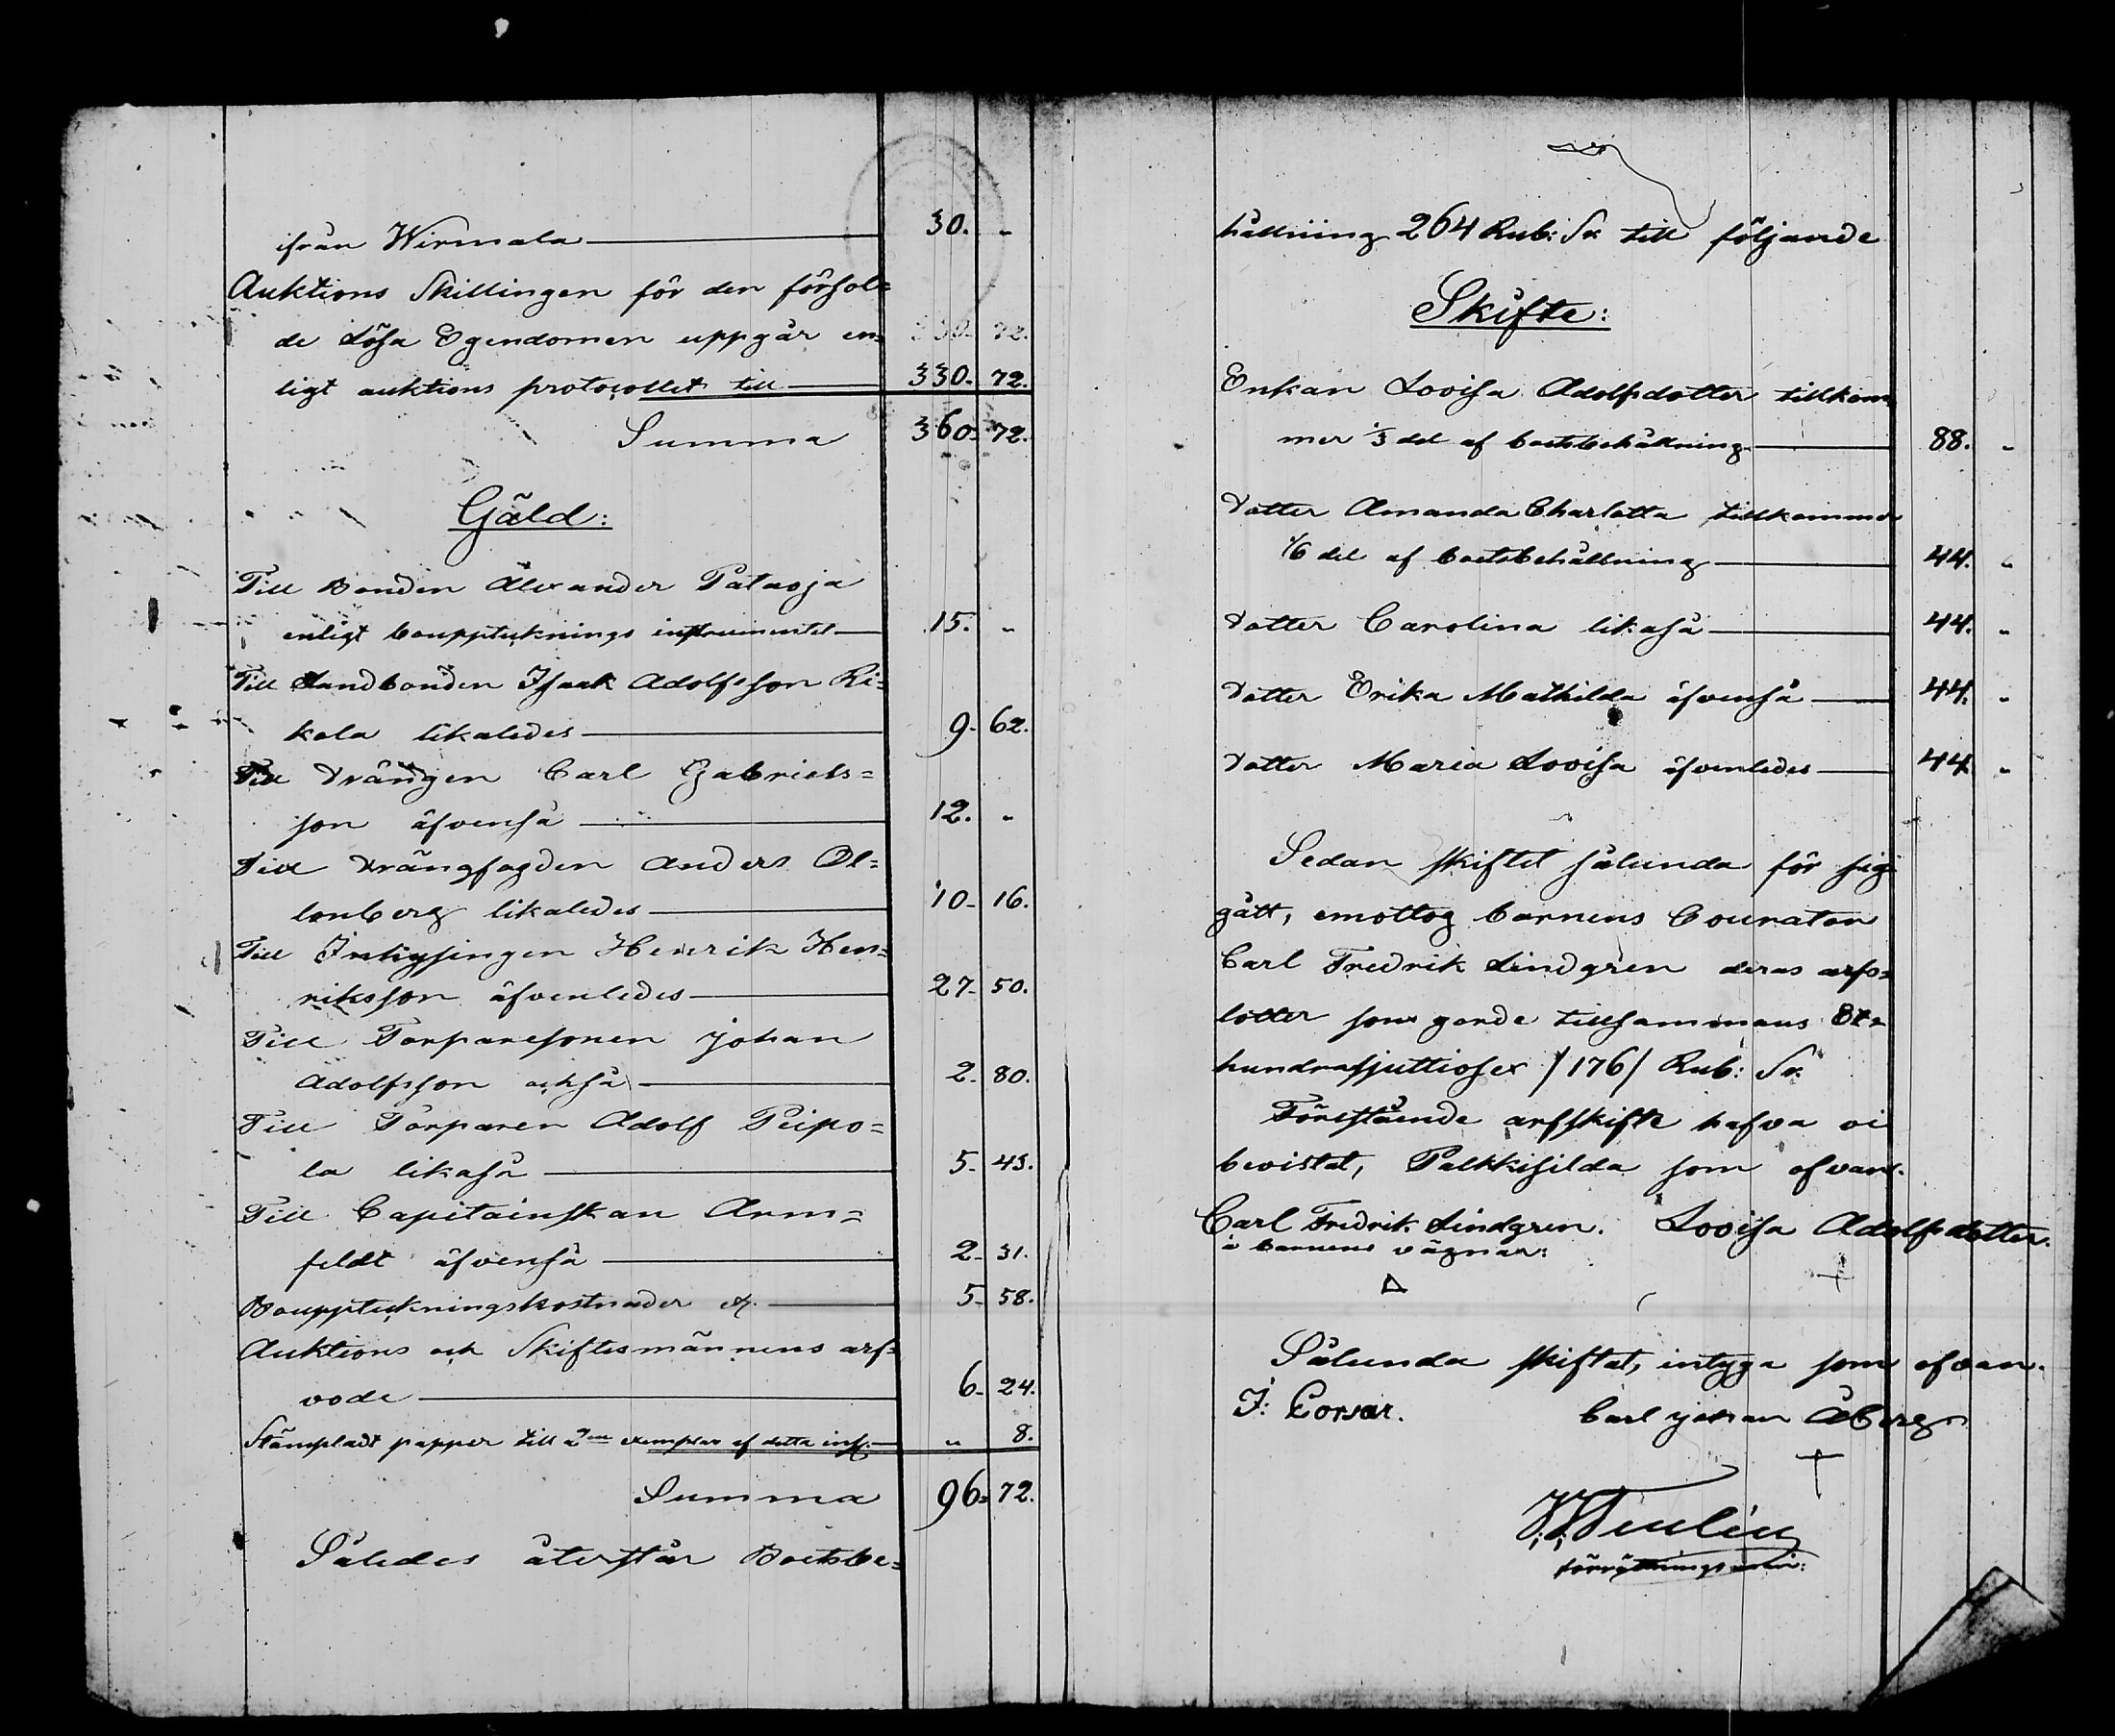 ifrån Wirmala 30. "
Auktions Skillingen för den försol=
de Lösa Egendomen uppgår en= 330. 72.
ligt auktions protocollet till 330. 72.
Summa 360. 72.
Gäld:
Till Bonden Alexander Pataoja
enligt bouppteknings instrumentet 15. "
Till Landbonden Isaak Adolfsson Ri=
kala likaledes 9. 62.
Till Drängen Carl Gabriels=
son äfvenså 12. "
Till Drängfogden Anders Ol=
lonberg likaledes 10. 16.
Till Inhysingen Henrik Hen=
riksson äfvenledes 27. 50.
Till Torparesonen Johan
Adolfsson också 2. 80.
Till Torparen Adolf Peipo=
la likaså 5. 43.
Till Capitainskan Arm=
feldt äfvenså 2. 31.
Bouppteckningskostnader &. 5. 58.
Auktions och Skiftesmännens arf=
vode 6. 24.
Stämpladt papper till 2ne exemplar af detta inst. " 8.
Summa 96. 72.
Således återstår Boetsbe=
hållning 264 Rub: Sr till följande
Skifte:
Enkan Lovisa Adolfsdotter tillkom=
mer 1/3 del af boetsbehållning 88. "
Dotter Amanda Charlotta tillkommer
1/6 del af boetsbehållning 44. "
Dotter Carolina likaså 44. "
Dotter Erika Mathilda äfvenså 44. "
Dotter Maria Lovisa äfvenledes 44. "
Sedan skiftet sålunda för sig
gått, emottog barnens Courator
Carl Fredrik Lindgren deras arfs=
lotter som gorde tillsammans Et=
hundrasjuttiosex /176/ Rub: Sr.
Förestående arfskifte hafva vi
bevistat, Palkkisilda som ofvan.
Carl Fredrik Lindgren. Lovisa Adolfsdotter.
å barnens vägnar:
Sålunda skiftat, intyga som ofvan.
J: Corsar. Carl Johan Åberg
förrättningsman: